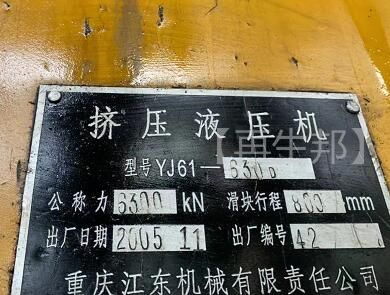 挤压液压机
型号 YJ61-630D
公称力 6300 kN 滑块行程 800 mm
出厂日期 2005 11 出厂编号 42
重庆江东机械有限责任公司
【再生邦】